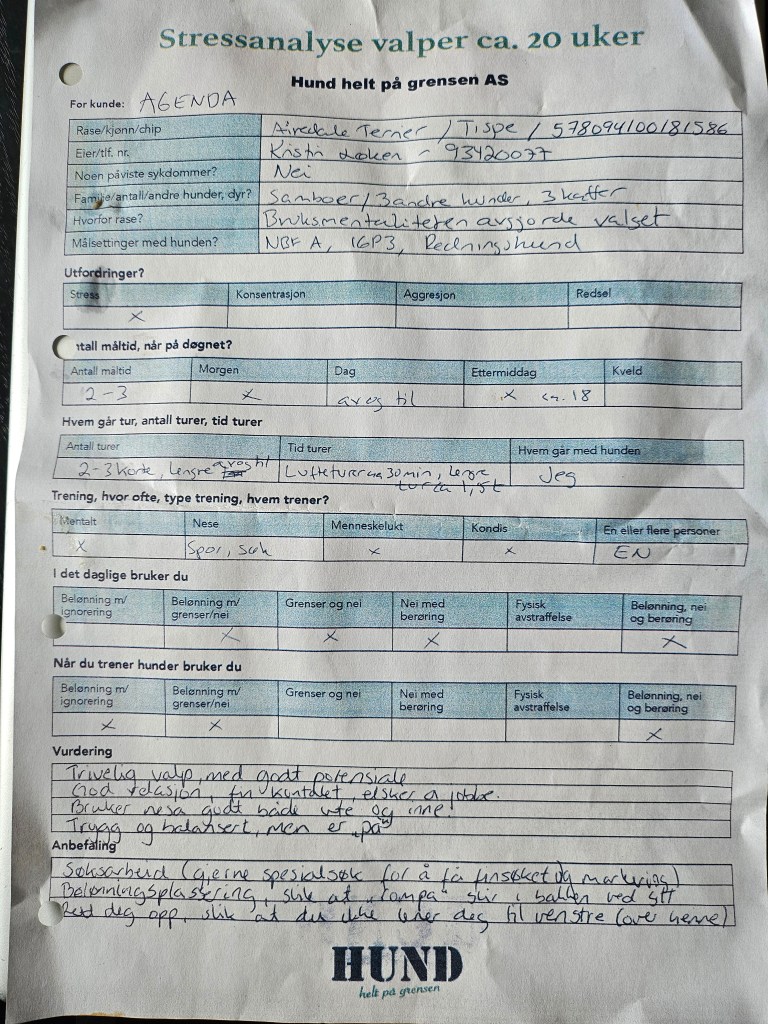 Stressanalyse valper ca. 20 uker
Hund helt på grensen AS
For kunde: AGENDA
Rase/kjønn/chip Airedale Terrier / Tispe / 578094100181586
Eier/tlf. nr. Kristin Løken - 93420077
Noen påviste sykdommer? Nei
Familie/antall/andre hunder, dyr? Samboer / 3 andre hunder, 3 katter
Hvorfor rase? Bruksmentaliteten avgjorde valget
Målsettinger med hunden? NBF A, IGP3, Redningshund
Utfordringer?
Stress Konsentrasjon Aggresjon Redsel
x
ntall måltid, når på døgnet?
Antall måltid Morgen Dag Ettermiddag Kveld
2-3 x av og til x ca. 18
Hvem går tur, antall turer, tid turer
Antall turer Tid turer Hvem går med hunden
2-3 korte, lengre av og til Lufteturer ca 30 min, lengre tur ca 1,5t Jeg
Trening, hvor ofte, type trening, hvem trener?
Mentalt Nese Menneskelukt Kondis En eller flere personer
x Spor, søk x x EN
I det daglige bruker du
Belønning m/ ignorering Belønning m/ grenser/nei Grenser og nei Nei med berøring Fysisk avstraffelse Belønning, nei og berøring
x x x x
Når du trener hunder bruker du
Belønning m/ ignorering Belønning m/ grenser/nei Grenser og nei Nei med berøring Fysisk avstraffelse Belønning, nei og berøring
x x x
Vurdering
Trivelig valp, med godt potensiale
God relasjon, fin kontakt, elsker å jobbe.
Bruker nesa godt både ute og inne!
Trygg og balansert, men er "på"
Anbefaling
Søksarbeid (gjerne spesialsøk for å få finsøket og markering)
Belønningsplassering, slik at "rompa" blir i bakken ved sitt
Rett deg opp, slik at du ikke lener deg til venstre (over henne)
HUND
helt på grensen